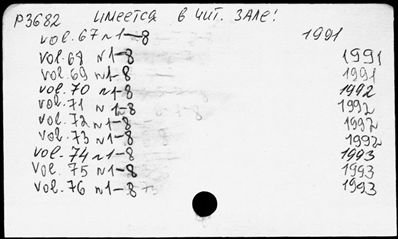 P3682 имеется в чит. зале!
vol. 67 n1-8 1991
vol. 68 n1-8 1991
vol. 69 n1-8 1991
vol. 70 n1-8 1992
vol. 71 n1-8 1992
vol. 72 n1-8 1992
vol. 73 n1-8 1992
vol. 74 n1-8 1993
vol. 75 n1-8 1993
vol. 76 n1-8 1993